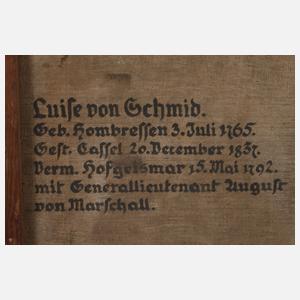 Luise von Schmid.
Geb. Hombressen 3. Juli 1765.
Gest. Cassel 20. December 1837.
Verm. Hofgeismar 15. Mai 1792.
mit Generallieutenant August
von Marschall.